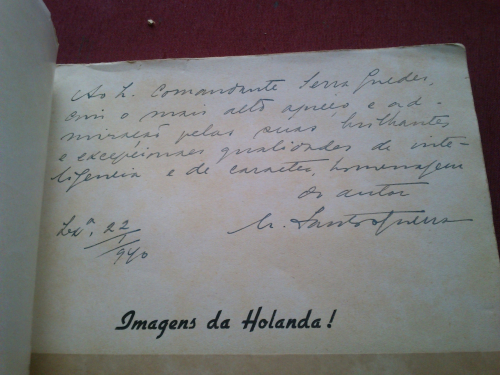 Ao Z. Comandante Serra Guedes,
com o mais alto apreço e ad-
miração pelas suas brilhantes
e excepcionaes qualidades de inte-
ligencia e de caracter, homenagem
do autor
M. Santos Guerra
Lxª, 22/1/940
Imagens da Holanda!